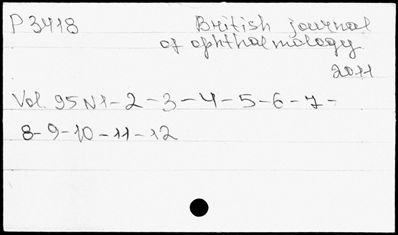 P 3418 British journal
of ophthalmology
2011
Vol. 95 N 1-2-3-4-5-6-7-
8-9-10-11-12